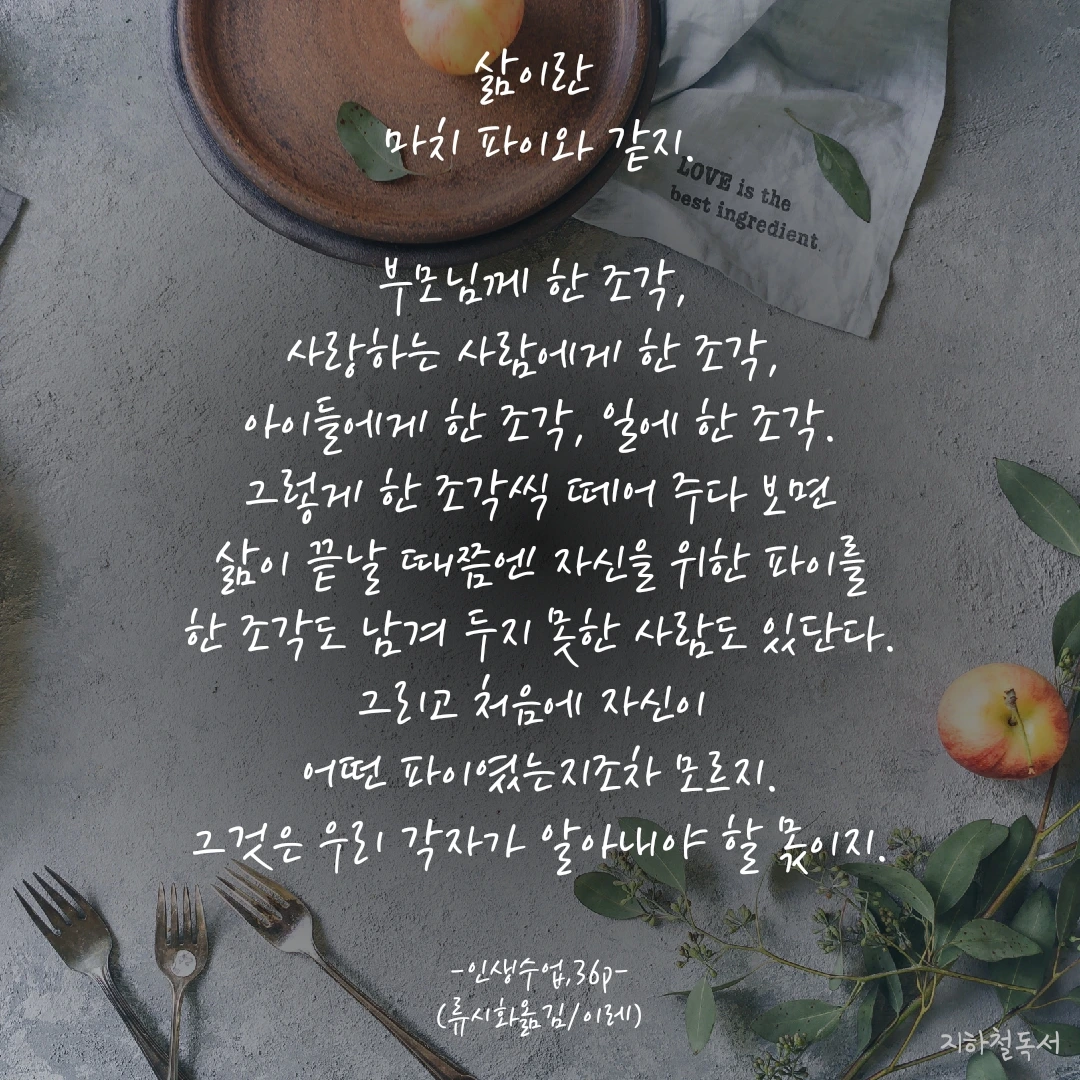 삶이란
마치 파이와 같지.
LOVE is the
best ingredient
부모님께 한 조각,
사랑하는 사람에게 한 조각,
아이들에게 한 조각, 일에 한 조각.
그렇게 한 조각씩 떼어 주다 보면
삶이 끝날 때쯤엔 자신을 위한 파이를
한 조각도 남겨 두지 못한 사람도 있단다.
그리고 처음에 자신이
어떤 파이였는지조차 모르지.
그것은 우리 각자가 알아내야 할 몫이지.
-인생수업,36p-
(류시화옮김/이레)
지하철독서